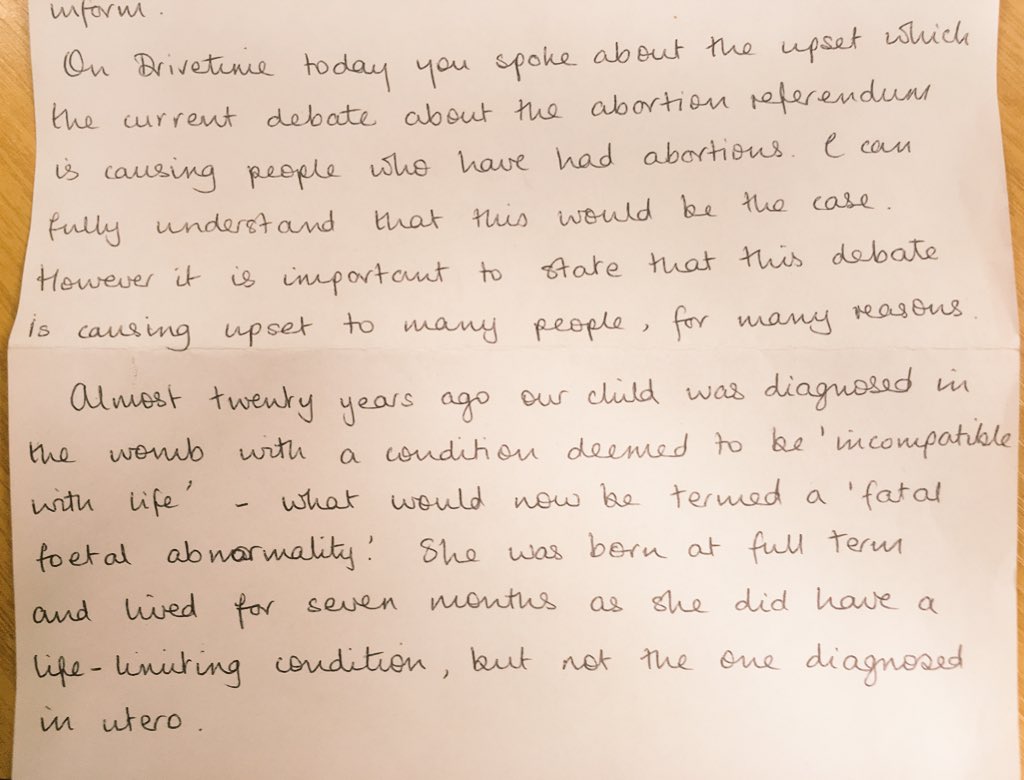 inform.
On Drivetime today you spoke about the upset which
the current debate about the abortion referendum
is causing people who have had abortions. I can
fully understand that this would be the case.
However it is important to state that this debate
is causing upset to many people, for many reasons.
Almost twenty years ago our child was diagnosed in
the womb with a condition deemed to be 'incompatible
with life' - what would now be termed a 'fatal
foetal abnormality'. She was born at full term
and lived for seven months as she did have a
life-limiting condition, but not the one diagnosed
in utero.